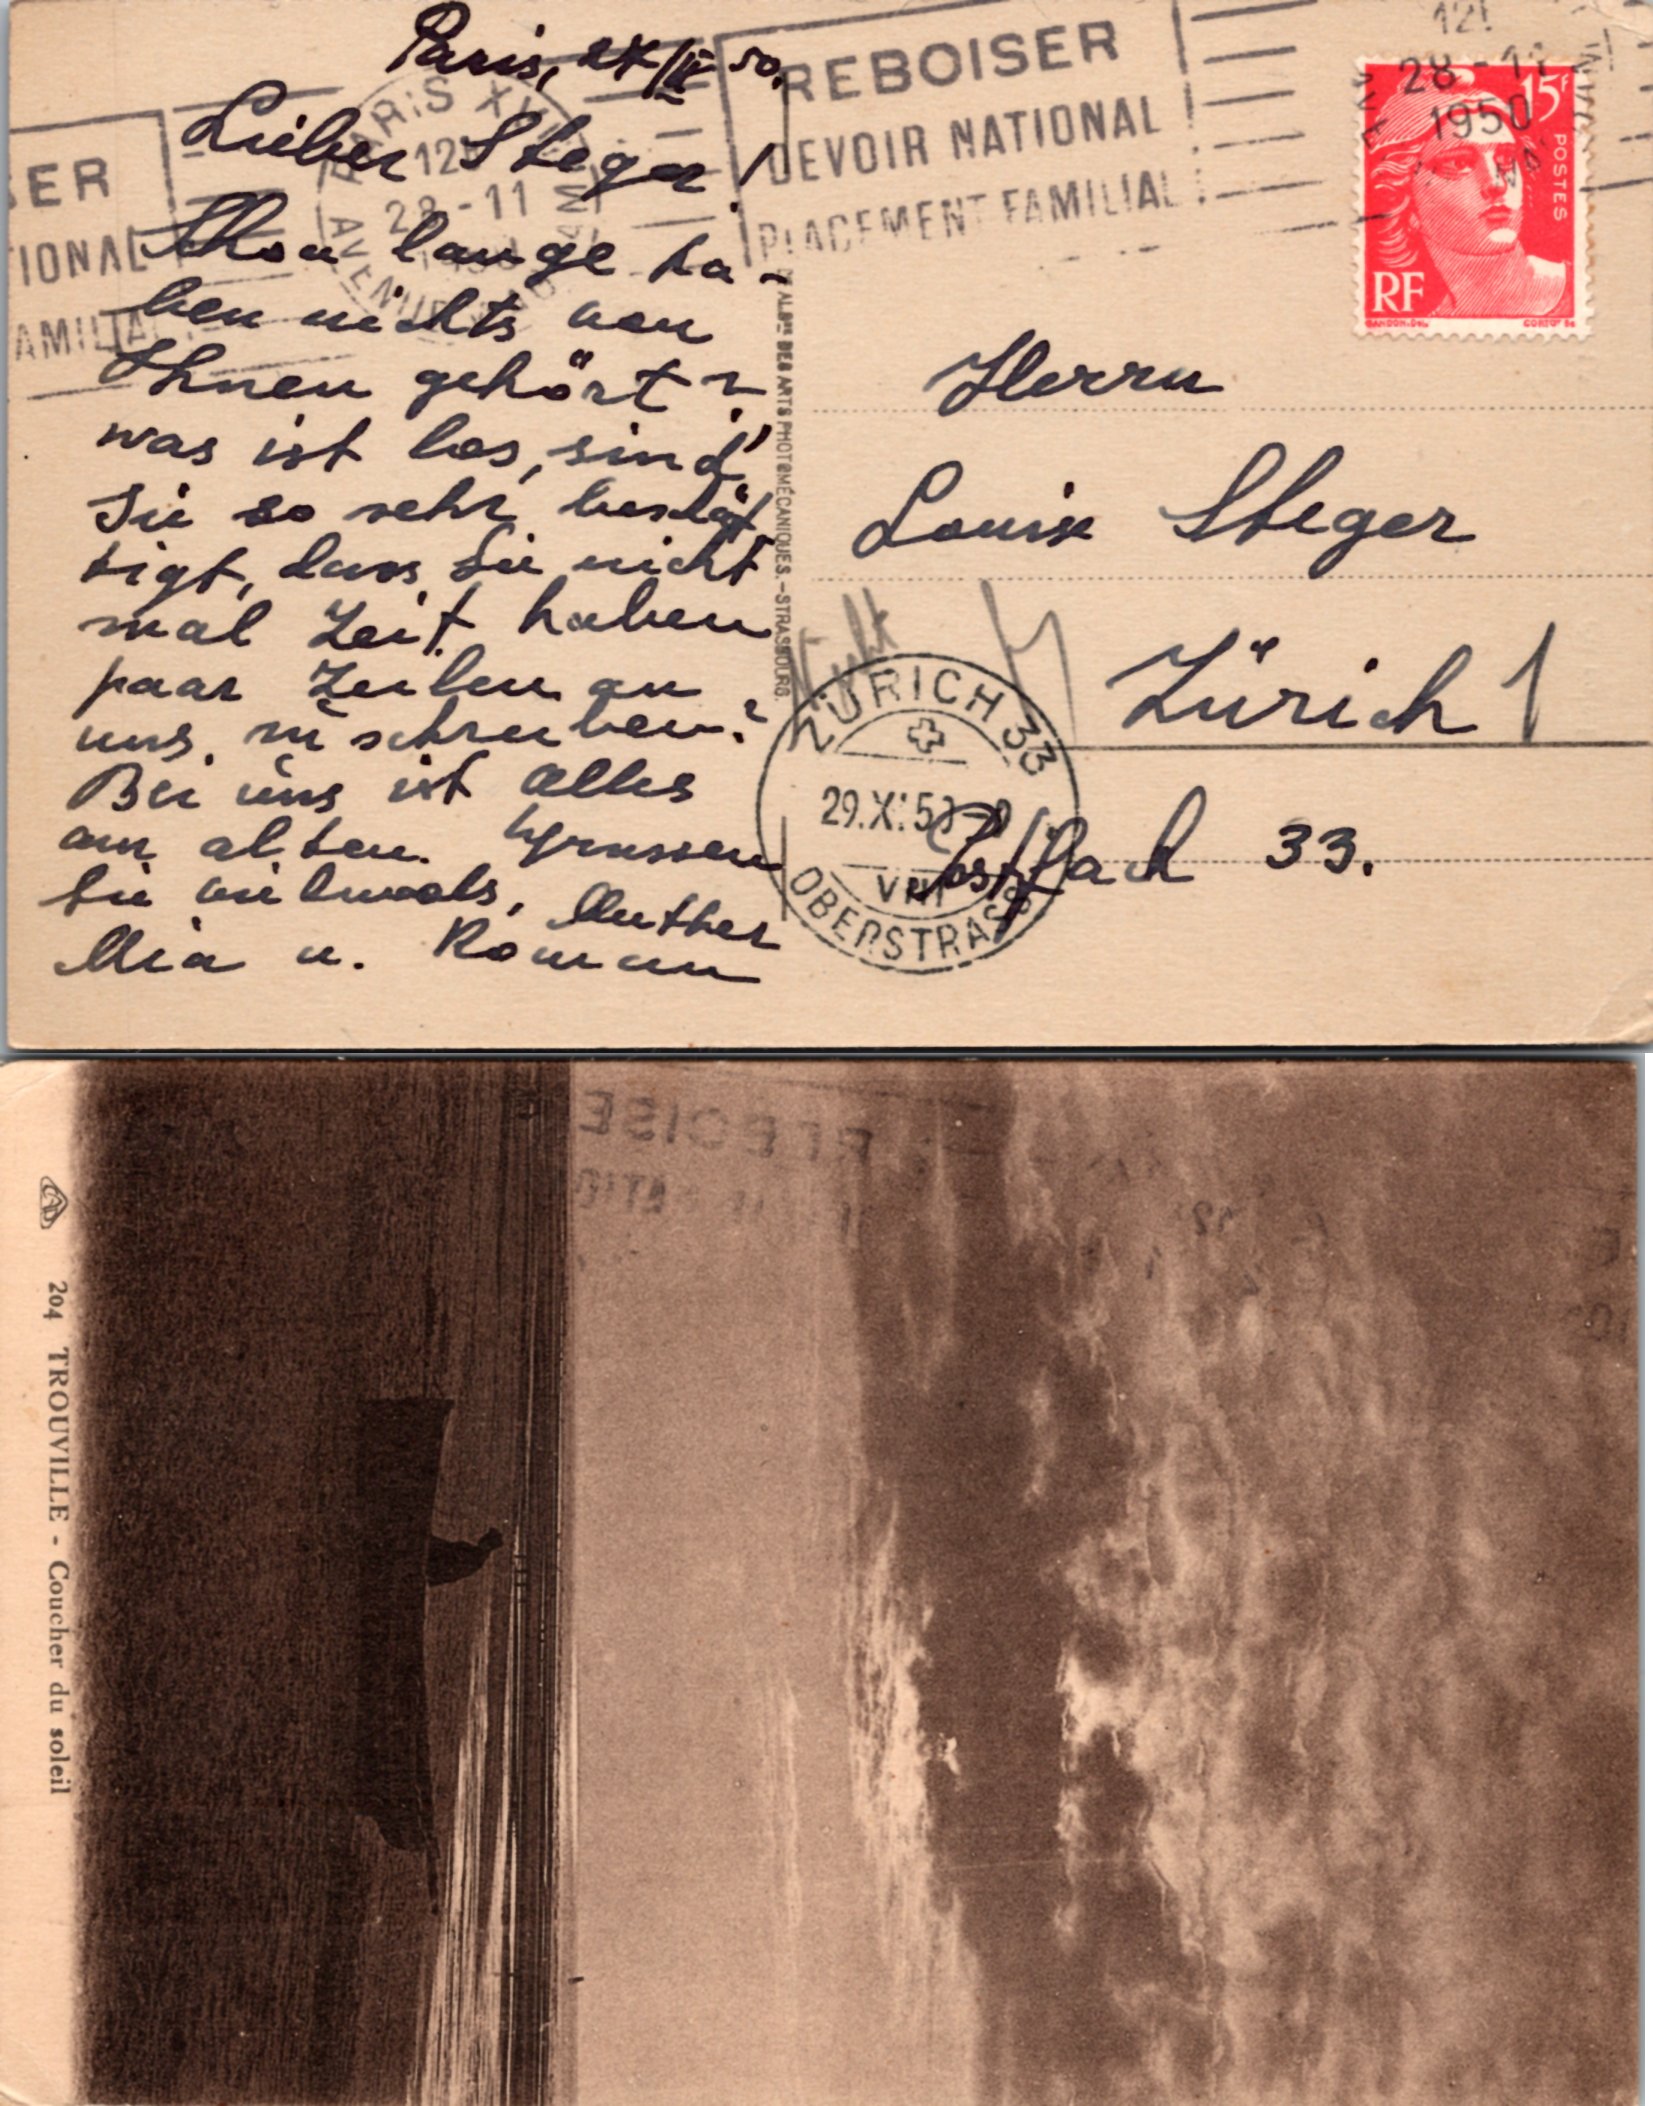 Paris, 27/XI 50.
Lieber Steger!
Schon lange ha-
ben nichts von
Ihnen gehört?
was ist los, sind
Sie so sehr beschäf
tigt, dass Sie nicht
mal Zeit haben
paar Zeilen an
uns zu schreiben?
Bei uns ist alles
am alten. Grüssen
Sie vielmals, Muther
Mia u. Roman
REBOISER
DEVOIR NATIONAL
PLACEMENT FAMILIAL
SER
TIONAL
AMILIA
PARIS XVI
12
28-11
AVENUE
12
28-11
1950
15F
POSTES
RF
GANDON
DES ARTS PHOTOMÉCANIQUES.-STRASBOURG.
Herrn
Louis Steger
Zürich 1
Postfach 33.
ZÜRICH 33
29.XI.50
VIII
OBERSTRASS
204 TROUVILLE - Coucher du soleil